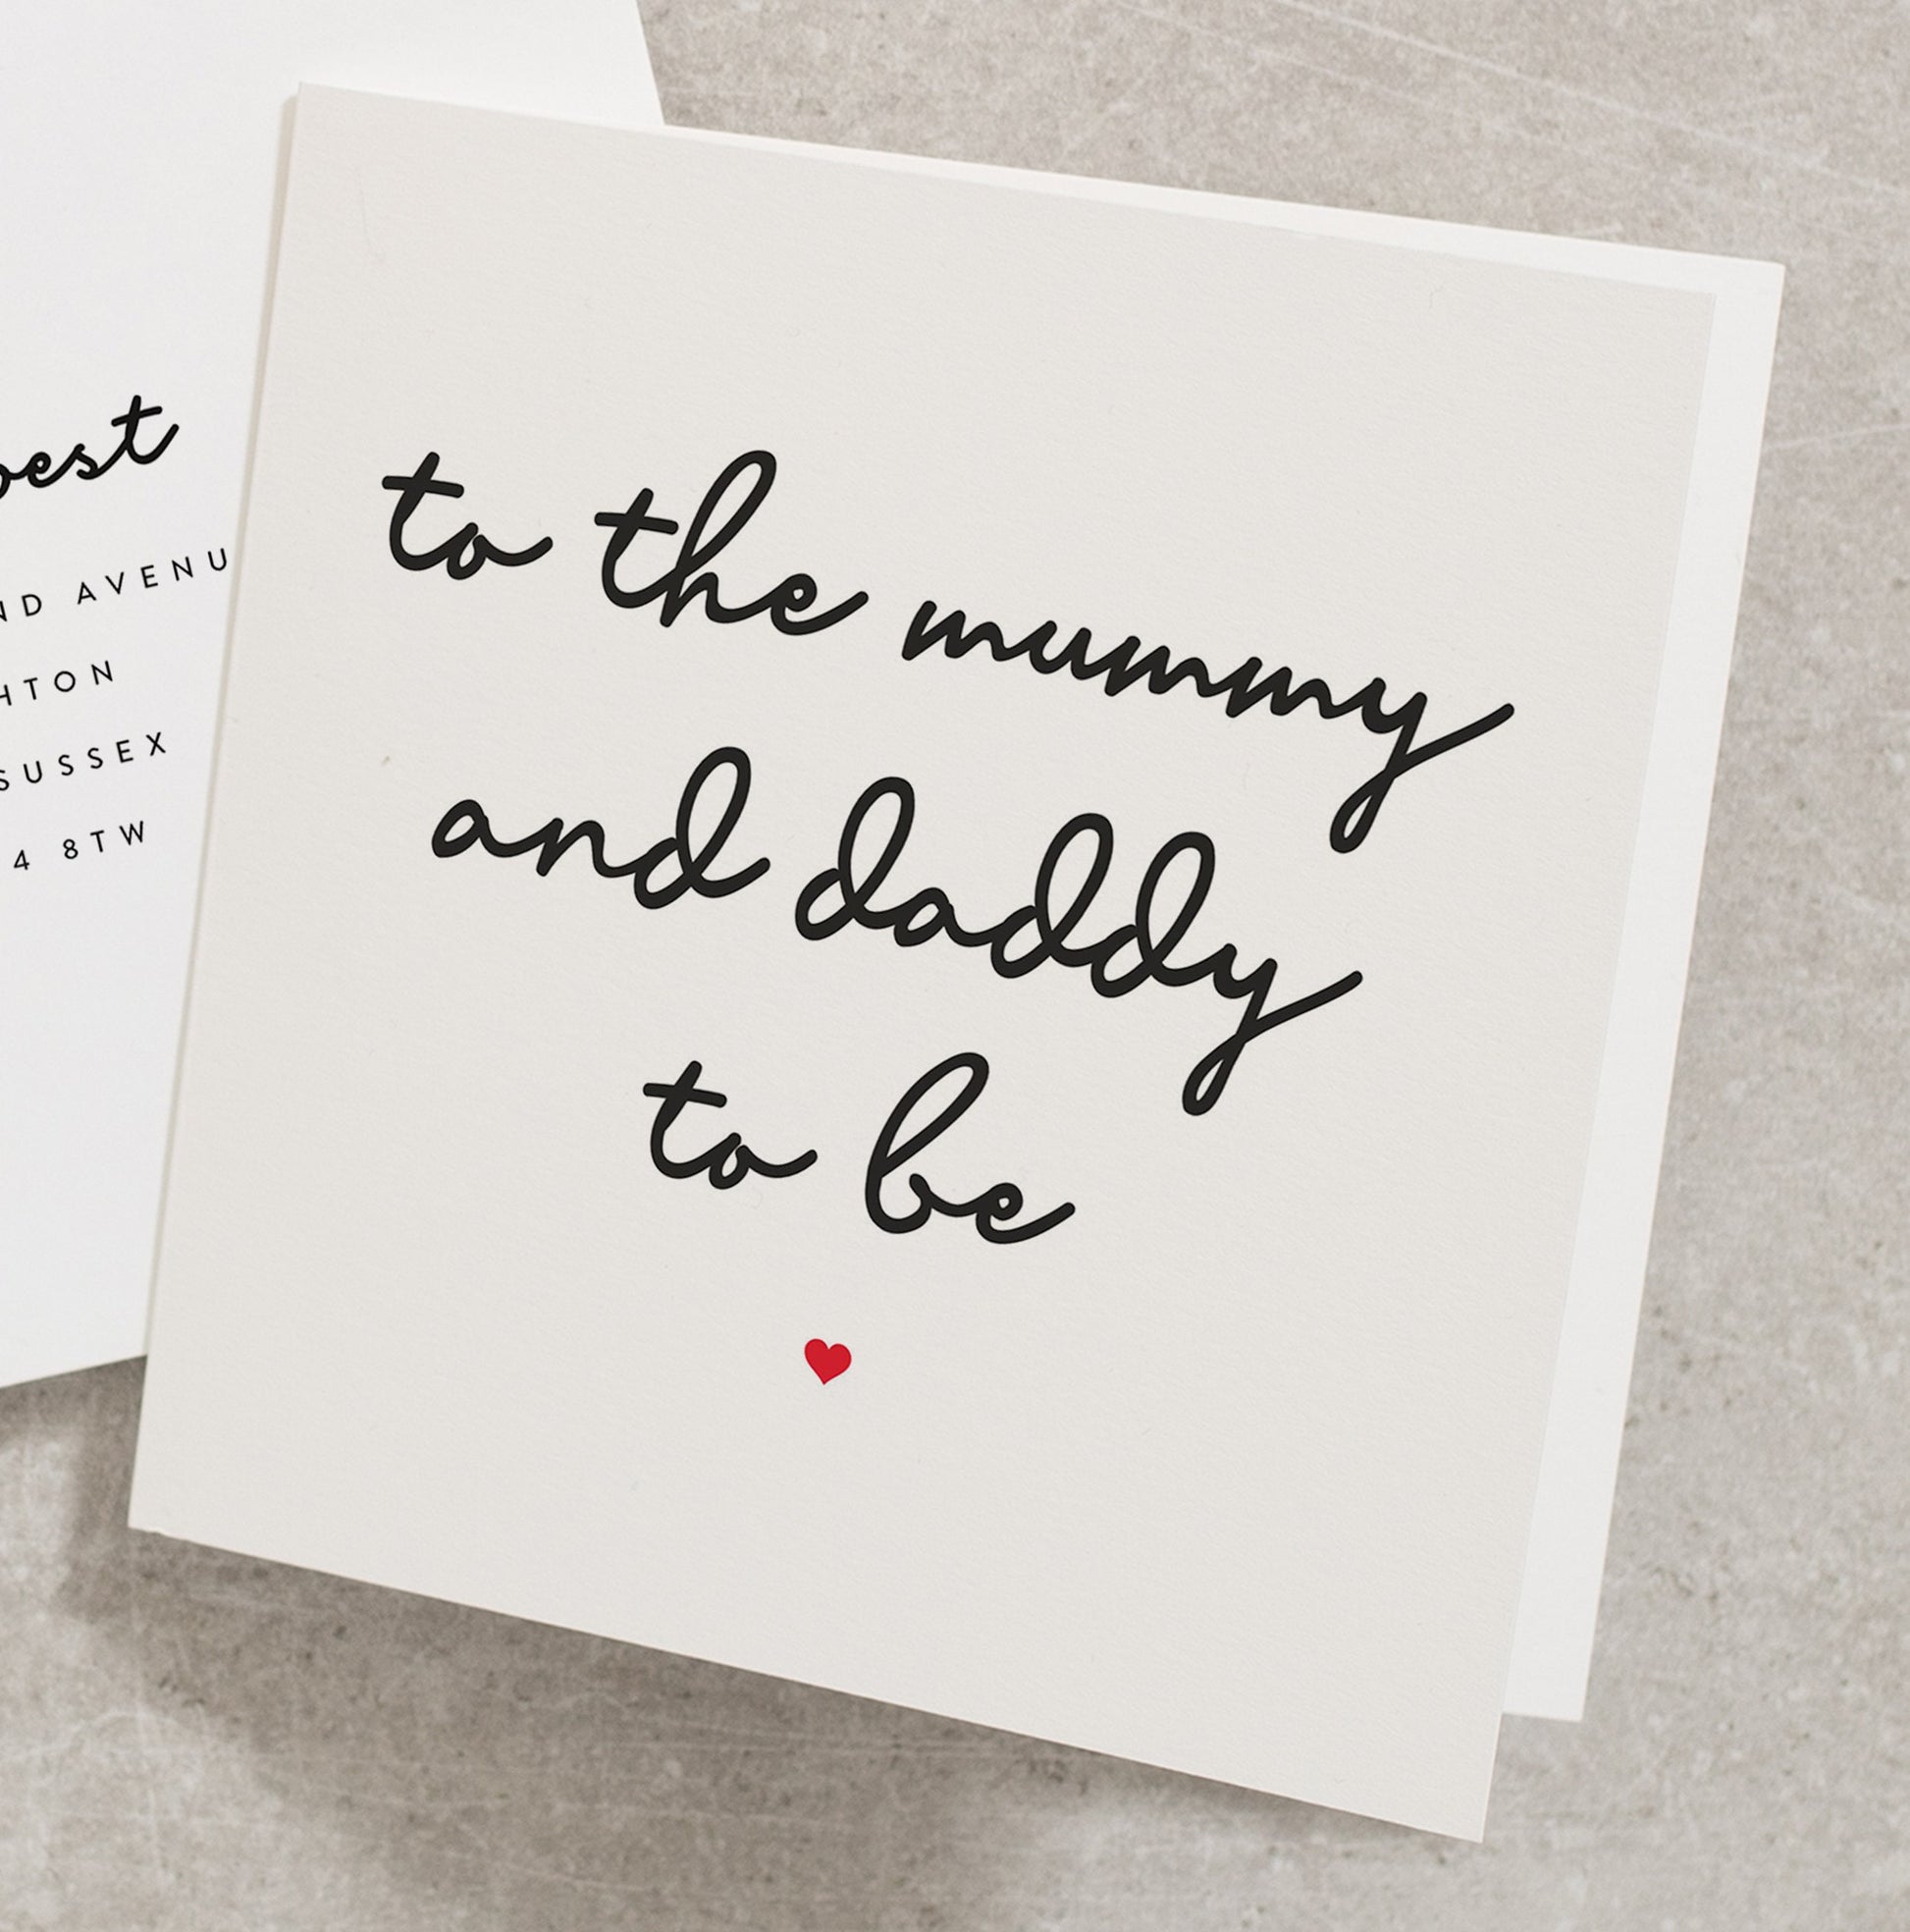 to the mummy
and daddy
to be
ND AVENU
HTON
SUSSEX
4 8TW